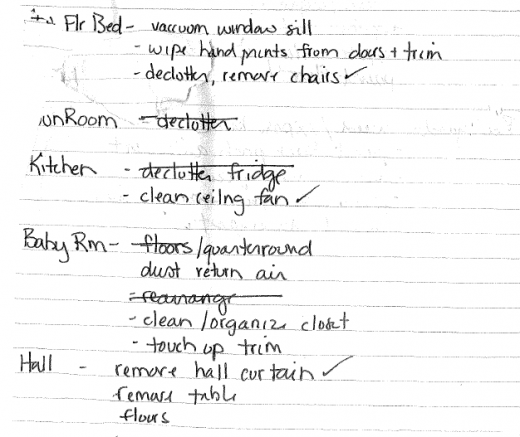 Flr Bed - vaccuum window sill
- wipe hand prints from doors + trim
- declutter, remove chairs ✓
unRoom - declutter
Kitchen - declutter fridge
- clean ceilng fan ✓
Baby Rm - floors/quarterround
dust return air
- rearrange
- clean/organize closet
- touch up trim
Hall - remove hall curtain ✓
remove table
floors